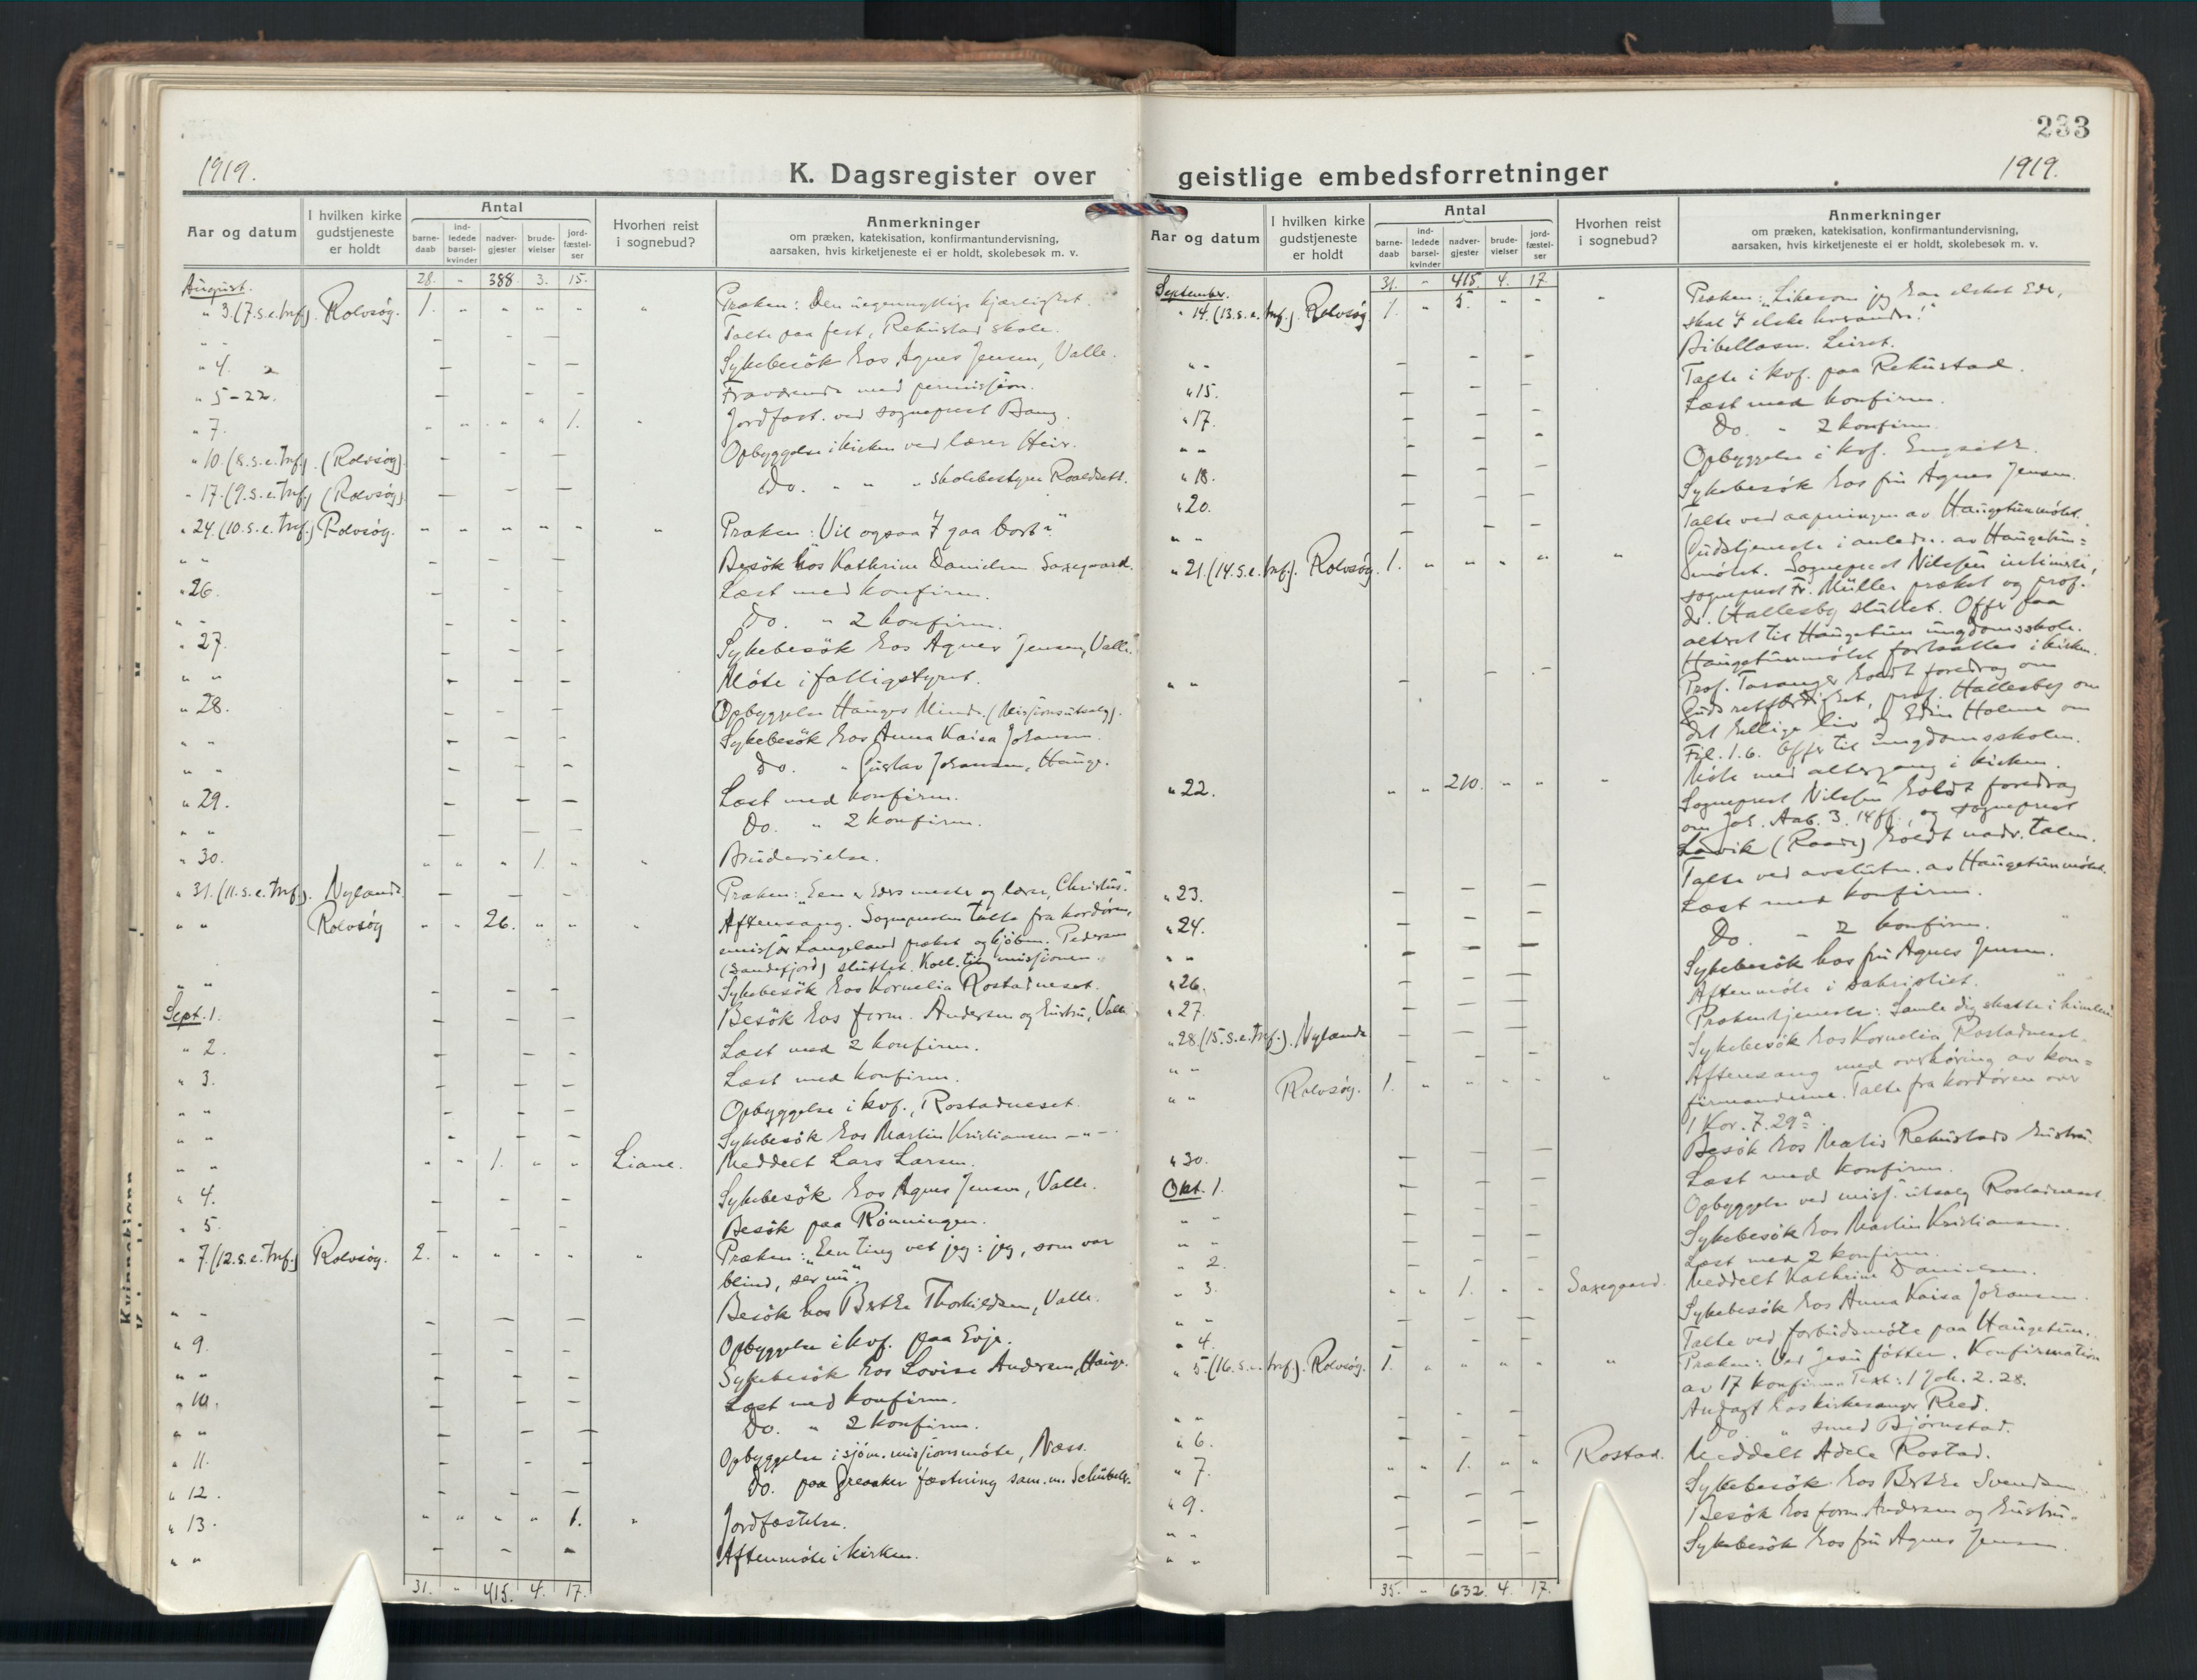 233
1919.
K. Dagsregister over geistlige embedsforretninger
1919.
Aar og datum
I hvilken kirke gudstjeneste er holdt
Antal
barne-daab
ind-ledede barsel-kvinder
nadver-gjester
brude-vielser
jord-fæstel-ser
Hvorhen reist i sognebud?
Anmerkninger
om præken, katekisation, konfirmantundervisning,
aarsaken, hvis kirketjeneste ei er holdt, skolebesøk m. v.
28. " 388 3. 15.
August.
" 3. (7.s.e.trf.). Rolvsøy. 1. " " " " " Præken: Den uegennyttige kjærlighet.
" " Talte paa fest, Rekustad skole.
" 4. Sykebesök hos Agnes Jensen, Valle.
" 5-22. Fraværende med permission.
" 7. " " " " 1. " Jordfæst. ved sogneprest Bang.
" 10. (8.s.e.trf.). (Rolvsøy). Opbyggelse i kirken ved lærer Heir.
" 17. (9.s.e.trf.) (Rolvsøy) Do. " " " skolebestyrer Roaldsett.
" 24. (10.s.e.trf.) Rolvsøy. " " " " " " Præken: Vil ogsaa I gaa bort?
" " Besök hos Kathrine Danielsen Saxegaard.
" 26. Læst med konfirm.
" " Do. " 2 konfirm.
" 27. Sykebesök hos Agnes Jensen, Valle.
" " Möte i fattigstyret.
" 28. Opbyggelse Hauges Minde (Misjonsutsalg).
" " Sykebesök hos Anna Kaisa Johansen.
" " Do. " Gustav Johansen, Hauge.
" 29. Læst med konfirm.
" " Do. " 2 konfirm.
" 30. " " " 1. " " Brudevielse.
" 31. (11.s.e.trf.). Nylande Præken: "Een er Eders mester og lærer, Christus."
" " Rolvsøy " " 26. " " " Aftensang. Sognepresten talte fra kordøren,
misjær Langeland præket og kjøbm. Pedersen
(Sandefjord) sluttet. Koll. til misjonen.
" " Sykebesök hos Kornelia Rostadneset.
Sept. 1. Besök hos form. Andersen og hustru, Valle
" 2. Læst med 2 konfirm.
" 3. Læst med konfirm.
" " Opbyggelse i kvf., Rostadneset.
" " Sykebesök hos Martin Kristiansen -"-
" " " " 1. " " Liane. Meddelt Lars Larsen.
" 4. Sykebesök hos Agnes Jensen, Valle.
" 5. Besök paa Rönningen.
" 7. (12.s.e.trf.) Rolvsøy. 2. " " " " " Præken: "Een ting vet jeg: jeg, som var
blind, ser nu."
" " Besök hos Berthe Thorkildsen, Valle.
" 9. Opbyggelse i kvf. paa Evje.
" " Sykebesök hos Lovise Andersen, Hauge.
" 10. Læst med konfirm.
" " Do. " 2 konfirm.
" 11. Opbyggelse i sjöm.misjonsmöte, Næss.
" 12. Do. paa Greaaker fæstning sam.m. Schübeler.
" 13. " " " " 1. " Jordfæstelse.
" " Aftenmöte i kirken.
31. " 415. 4. 17.
Aar og datum
I hvilken kirke gudstjeneste er holdt
Antal
barne-daab
ind-ledede barsel-kvinder
nadver-gjester
brude-vielser
jord-fæstel-ser
Hvorhen reist i sognebud?
Anmerkninger
om præken, katekisation, konfirmantundervisning,
aarsaken, hvis kirketjeneste ei er holdt, skolebesøk m. v.
31. " 415. 4. 17.
September.
" 14. (13.s.e.trf.). Rolvsøy 1. " 5. " " " Præken: "Likesom jeg har elsket Eder,
skal I elske hverandre!"
" " Bibellæsn. Leiret.
" 15. Talte i kvf. paa Rekustad.
" 17. Læst med konfirm.
" " Do. " 2 konfirm.
" 18. Opbyggelse i kvf. Engsitt.
" 20. Sykebesök hos fru Agnes Jensen.
" " Talte ved aapningen av Haugetunmötet.
" 21. (14.s.e.trf.). Rolvsøy. 1. " " " " " Gudstjeneste i anledn. av Haugetun=
mötet. Sogneprest Nilssen intimerte,
sogneprest Fr. Müller præket og prof.
dr. Hallesby sluttet. Offer paa
alteret til Haugetun ungdomsskole.
" " Haugetunmötet fortsattes i kirken.
Prof. Taranger holdt foredrag om
Guds retfærdighet, prof. Hallesby om
det hellige liv og Edin Holme om
Fil. 1.6. Offer til ungdomsskolen.
" 22. " " 210. " " " Möte med altergang i kirken.
Sogneprest Nilssen holdt foredrag
om Joh. Aab. 3. 14 ff., og sogneprest
Løvik (Raade) holdt nadv. talen.
" 23. Talte ved avslutn. av Haugetunmötet.
" 24. Læst med konfirm.
" " Do. " 2 konfirm.
" 26. Sykebesök hos fru Agnes Jensen.
" 27. Aftenmöte i sakristiet.
" 28. (15.s.e.trf.). Nylande Prækentjeneste: Samle dig skatte i himlen
" " Sykebesök hos Kornelia Rostadneset.
" " Rolvsøy. 1. " " " " " Aftensang med overhöring av kon=
firmanderne. Talte fra kordøren over
1 Kor. 7. 29a.
" 30. Besök hos Mathis Rekustads hustru.
Okt. 1. Læst med konfirm.
" " Opbyggelse ved misj. utsalg Rostadneset.
" " Sykebesök hos Martin Kristiansen.
" 2. Læst med 2 konfirm.
" 3. " " 1. " " Saxegaard. Meddelt Kathrine Danielsen.
" " Sykebesök hos Anna Kaisa Johansen.
" 4. Talte ved forbudsmöte paa Haugetun.
" 5. (16.s.e.trf.). Rolvsøy. 1. " " " " " Præken: Ved Jesu fötter. Konfirmation
av 17 konfirm. Text: 1 Joh. 2. 28.
" " Andagt hos kirkesanger Reed.
" 6. Do. " smed Björnstad.
" 7. " " 1. " " Rostad. Meddelt Adele Rostad.
" 9. Sykebesök hos Berthe Svendsen.
" " Besök hos form. Andersen og hustru.
" " Sykebesök hos fru Agnes Jensen.
35. " 632. 4. 17.